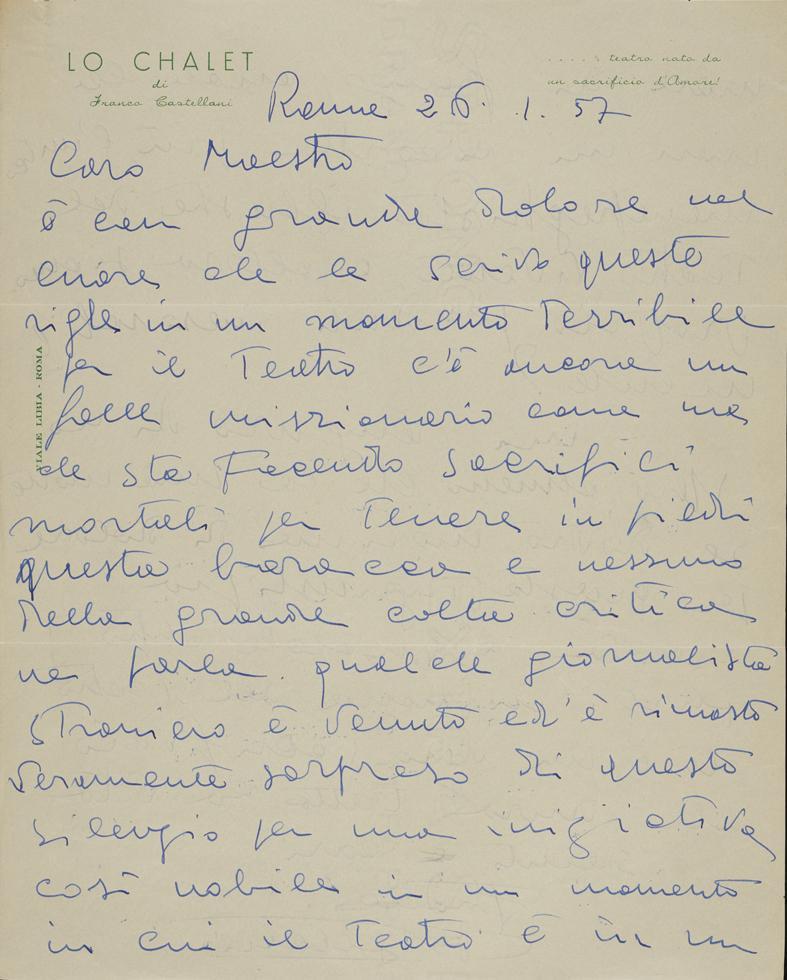 LO CHALET
di
Franco Castellani
.... : teatro nato da
un sacrificio d'Amore!
VIALE LIBIA - ROMA
Roma 26. 1. 57
Caro Maestro
è con grande dolore nel
cuore che le scrivo queste
righe in un momento terribile
per il Teatro c'è ancora un
folle missionario come me
che sta facendo sacrifici
mortali per tenere in piedi
questa baracca e nessuno
della grande colta critica
ne parla. qualche giornalista
straniero è venuto ed'è rimasto
veramente sorpreso di questo
silenzio per una iniziativa
così nobile in un momento
in cui il Teatro è in un